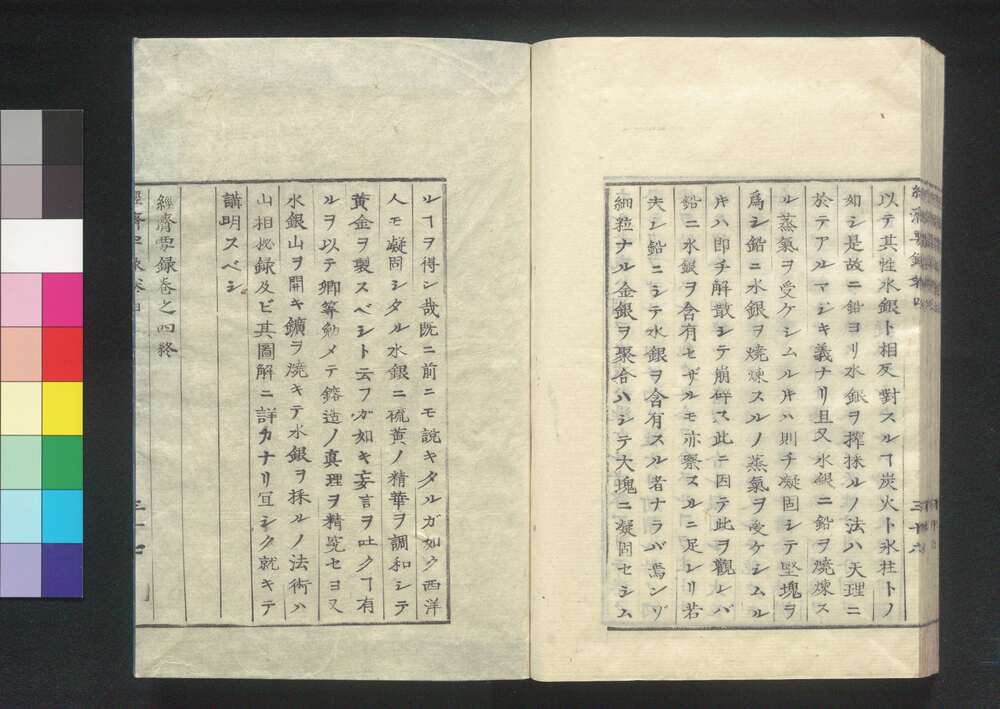 以テ其性水銀ト相反對スルヿ炭火ト氷柱トノ
如シ是故ニ鉛ヨリ水銀ヲ搾採ルノ法ハ天理ニ
於テアルマジキ義ナリ且又水銀ニ鉛ヲ燒煉ス
ル蒸氣ヲ受ケシムルトキハ則チ凝固シテ堅塊ヲ
爲シ鉛ニ水銀ヲ燒煉スルノ蒸氣ヲ受ケシムル
トキハ即チ解散シテ崩碎ス此ニ因テ此ヲ觀レバ
鉛ニ水銀ヲ含有セザルモ亦察スルニ足レリ若
夫レ鉛ニシテ水銀ヲ含有スル者ナラバ焉ンゾ
細粒ナル金銀ヲ聚合ハシテ大塊ニ凝固セシム
三十六
ルヿヲ得ン哉既ニ前ニモ說キタルガ如ク西洋
人モ凝固シタル水銀ニ硫黃ノ精華ヲ調和シテ
黃金ヲ製スベシト云フガ如キ妄言ヲ吐クヿ有
ルヲ以テ卿等勉メテ鎔造ノ真理ヲ精究セヨ又
水銀山ヲ開キ鑛ヲ燒キテ水銀ヲ採ルノ法術ハ
山相秘録及ビ其圖解ニ詳カナリ宜シク就キテ
講明スベシ
經濟要録卷之四終
三十七